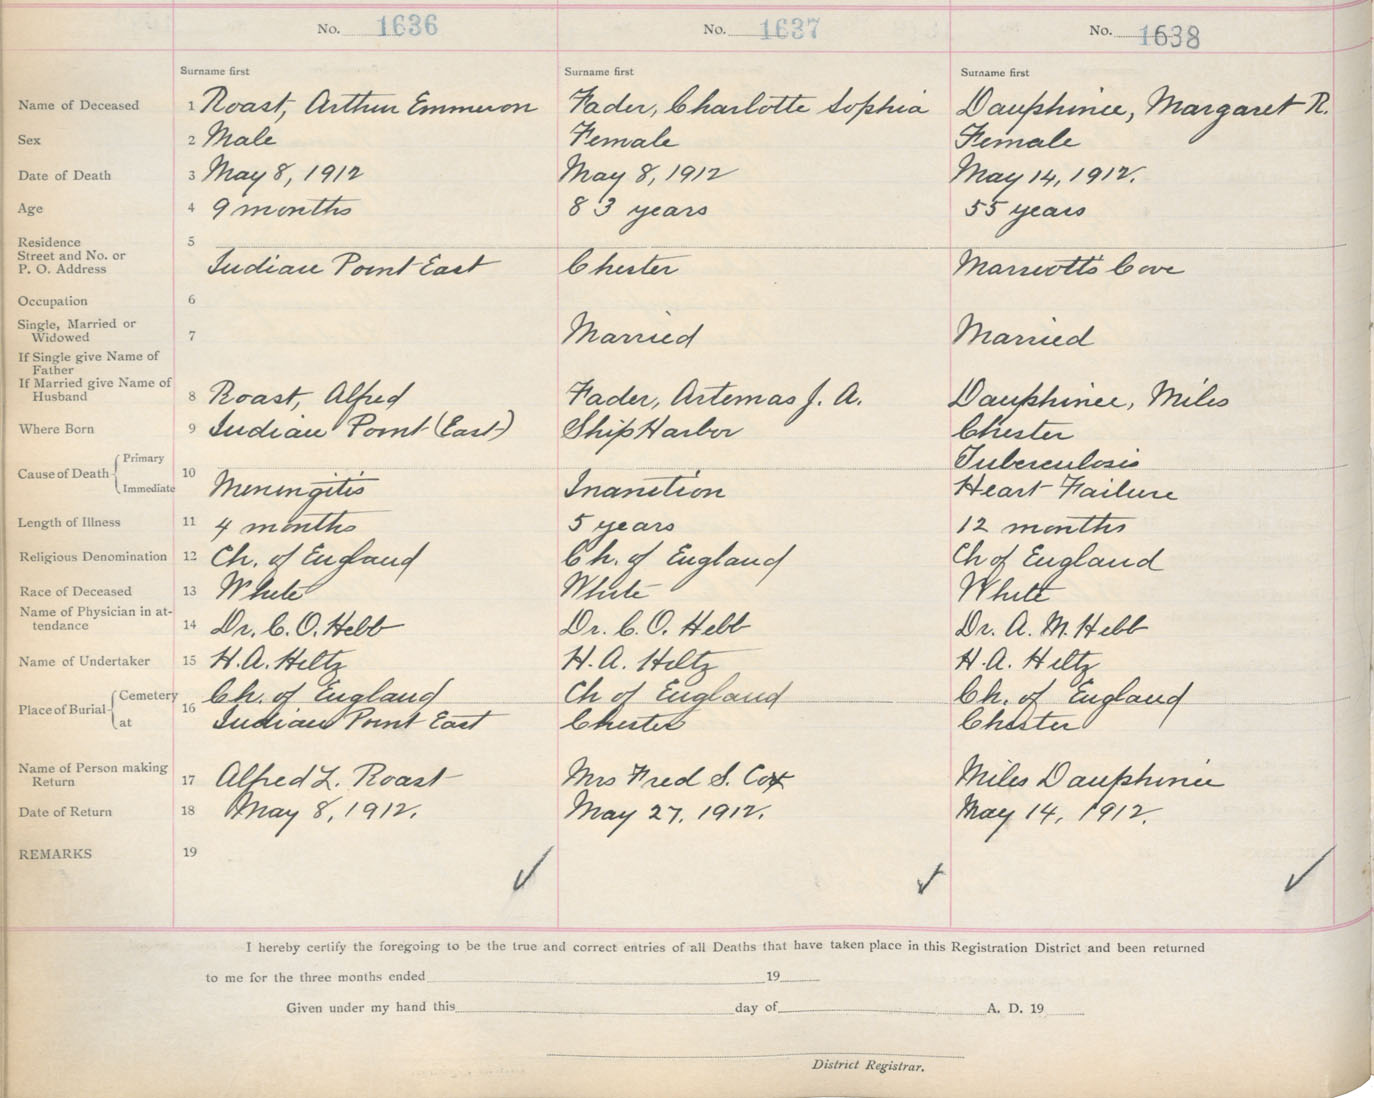 No. 1636 No. 1637 No. 1638
Surname first Surname first Surname first
Name of Deceased 1 Roast, Arthur Emmerson Fader, Charlotte Sophia Dauphinee, Margaret R.
Sex 2 Male Female Female
Date of Death 3 May 8, 1912 May 8, 1912 May 14, 1912.
Age 4 9 months 83 years 55 years
Residence 5
Street and No. or
P. O. Address Indian Point East Chester Marriott's Cove
Occupation 6
Single, Married or
Widowed 7 Married Married
If Single give Name of
Father
If Married give Name of
Husband 8 Roast, Alfred Fader, Artemas J. A. Dauphinee, Miles
Where Born 9 Indian Point (East) Ship Harbor Chester
Cause of Death Primary 10 Tuberculosis
Immediate Meningitis Inanition Heart Failure
Length of Illness 11 4 months 5 years 12 months
Religious Denomination 12 Ch. of England Ch. of England Ch of England
Race of Deceased 13 White White White
Name of Physician in at-
tendance 14 Dr. C. O. Hebb Dr. C. O. Hebb Dr. A. M. Hebb
Name of Undertaker 15 H. A. Hiltz H. A. Hiltz H. A. Hiltz
Place of Burial Cemetery 16 Ch. of England Ch of England Ch. of England
at Indian Point East Chester Chester
Name of Person making
Return 17 Alfred L. Roast Mrs Fred S. Cox Miles Dauphinee
Date of Return 18 May 8, 1912. May 27, 1912. May 14, 1912.
REMARKS 19
I hereby certify the foregoing to be the true and correct entries of all Deaths that have taken place in this Registration District and been returned
to me for the three months ended 19
Given under my hand this day of A. D. 19
District Registrar.